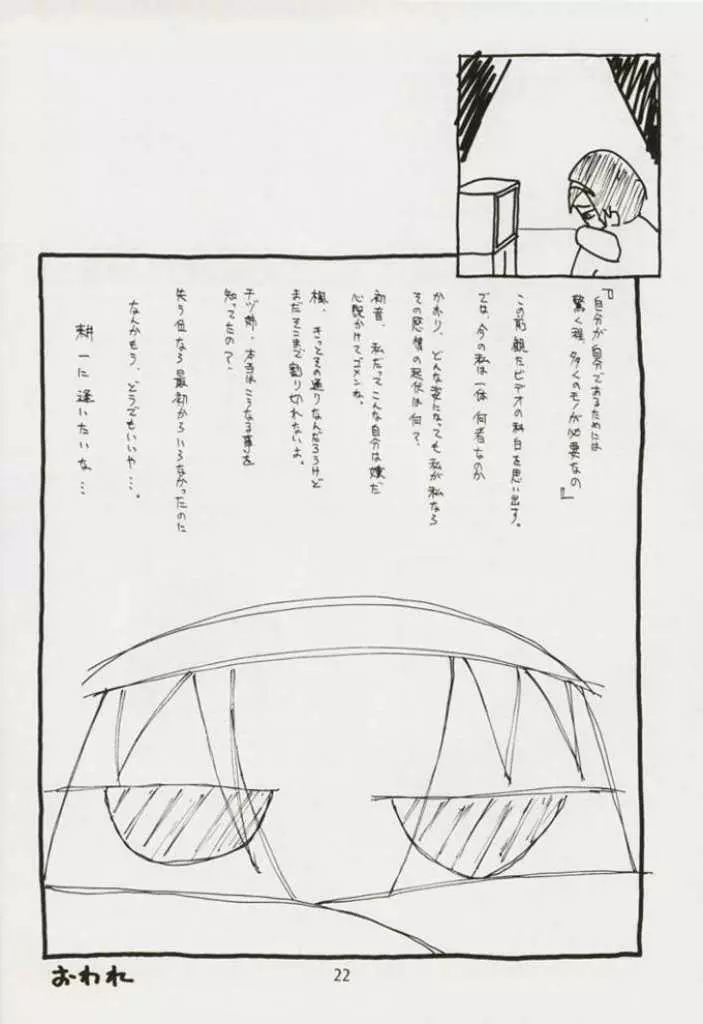 『自分が自分であるためには
驚く程、多くのモノが必要なの』
この前観たビデオの科白を思い出す。
では、今の私は一体何者なのか
かおり、どんな姿になっても私が私なら
その感情の起伏は何？
初音、私だってこんな自分は嫌だ
心配かけてゴメンね。
楓、きっとその通りなんだろうけど
まだそこまで割り切れないよ。
千ヅ姉、本当はこうなる事を
知ってたの？、
失う位なら最初からいらなかったのに
なんかもう、どうでもいいや…。
耕一に逢いたいな…
おわれ
22